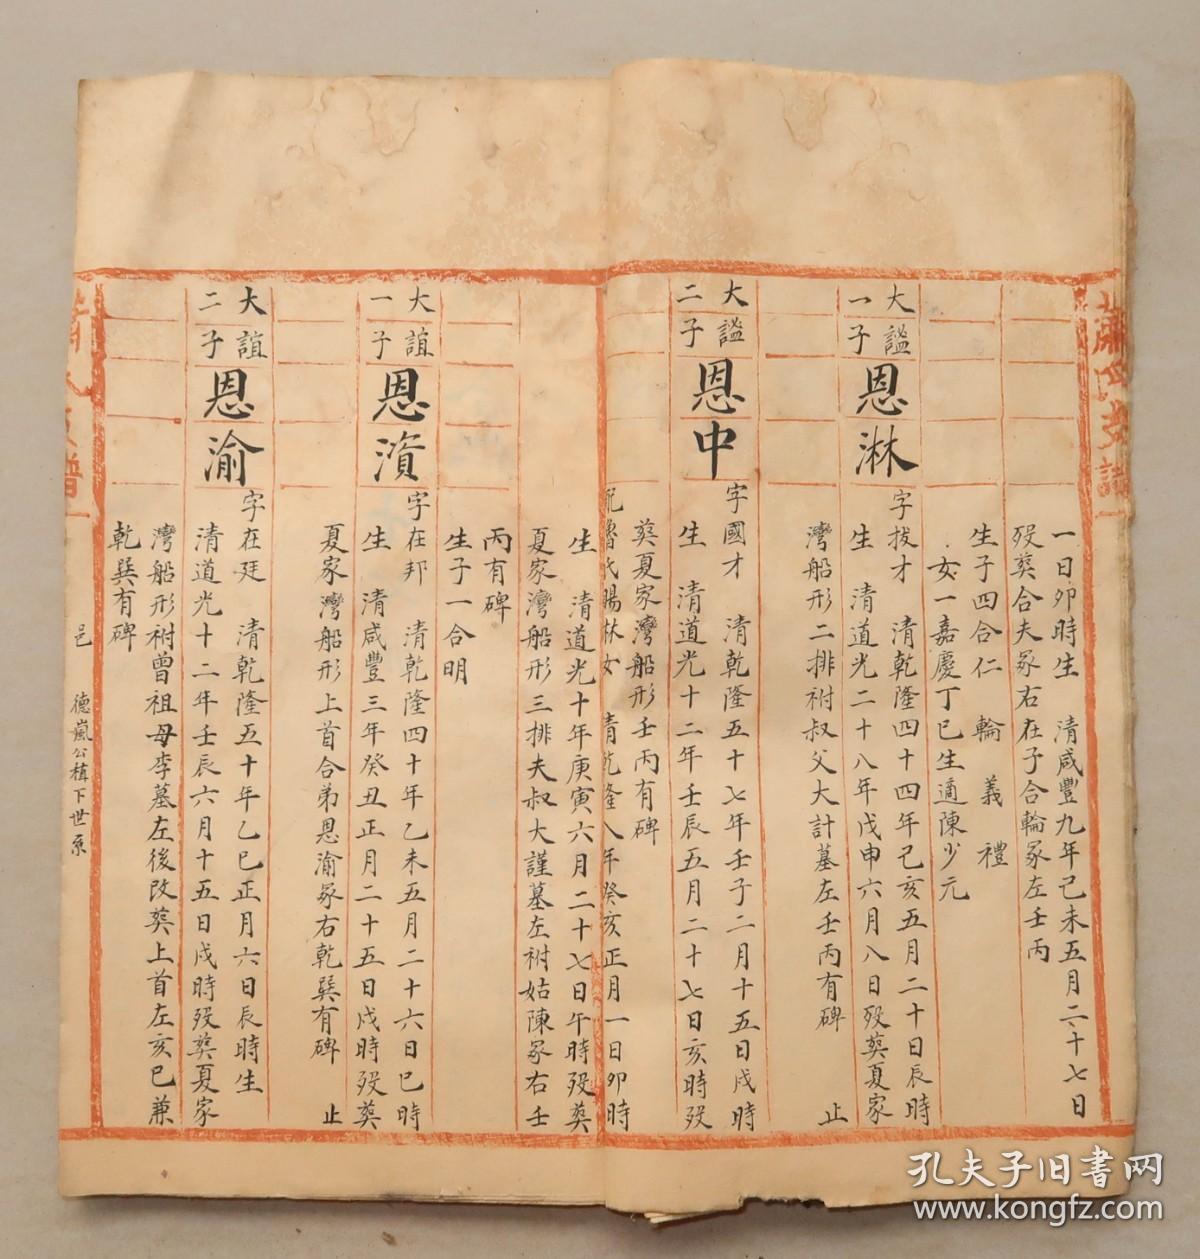 一日卯時生　清咸豐九年己未五月二十七日
歿葬合夫冢右在子合輪冢左壬丙
生子四合仁　輪　義　禮
女一嘉慶丁巳生適陳少元
大諡
一子
恩淋
字拔才　清乾隆四十四年己亥五月二十日辰時
生　清道光二十八年戊申六月八日歿葬夏家
灣船形二排祔叔父大計墓左壬丙有碑　止
大諡
二子
恩中
字國才　清乾隆五十七年壬子二月十五日戌時
生　清道光十二年壬辰五月二十七日亥時歿
葬夏家灣船形壬丙有碑
配魯氏賜林女　清乾隆八年癸亥正月一日卯時
生　清道光十年庚寅六月二十七日午時歿葬
夏家灣船形三排夫叔大謹墓左祔姑陳冢右壬
丙有碑
生子一合明
大誼
一子
恩濱
字在邦　清乾隆四十年乙未五月二十六日巳時
生　清咸豐三年癸丑正月二十五日戌時歿葬
夏家灣船形上首合弟恩渝冢右乾巽有碑　止
大誼
二子
恩渝
字在廷　清乾隆五十年乙巳正月六日辰時生
清道光十二年壬辰六月十五日戌時歿葬夏家
灣船形祔曾祖母李墓左後改葬上首左亥巳兼
乾巽有碑
邑　德嵐公植下世系
孔夫子旧書网
www.kongfz.com